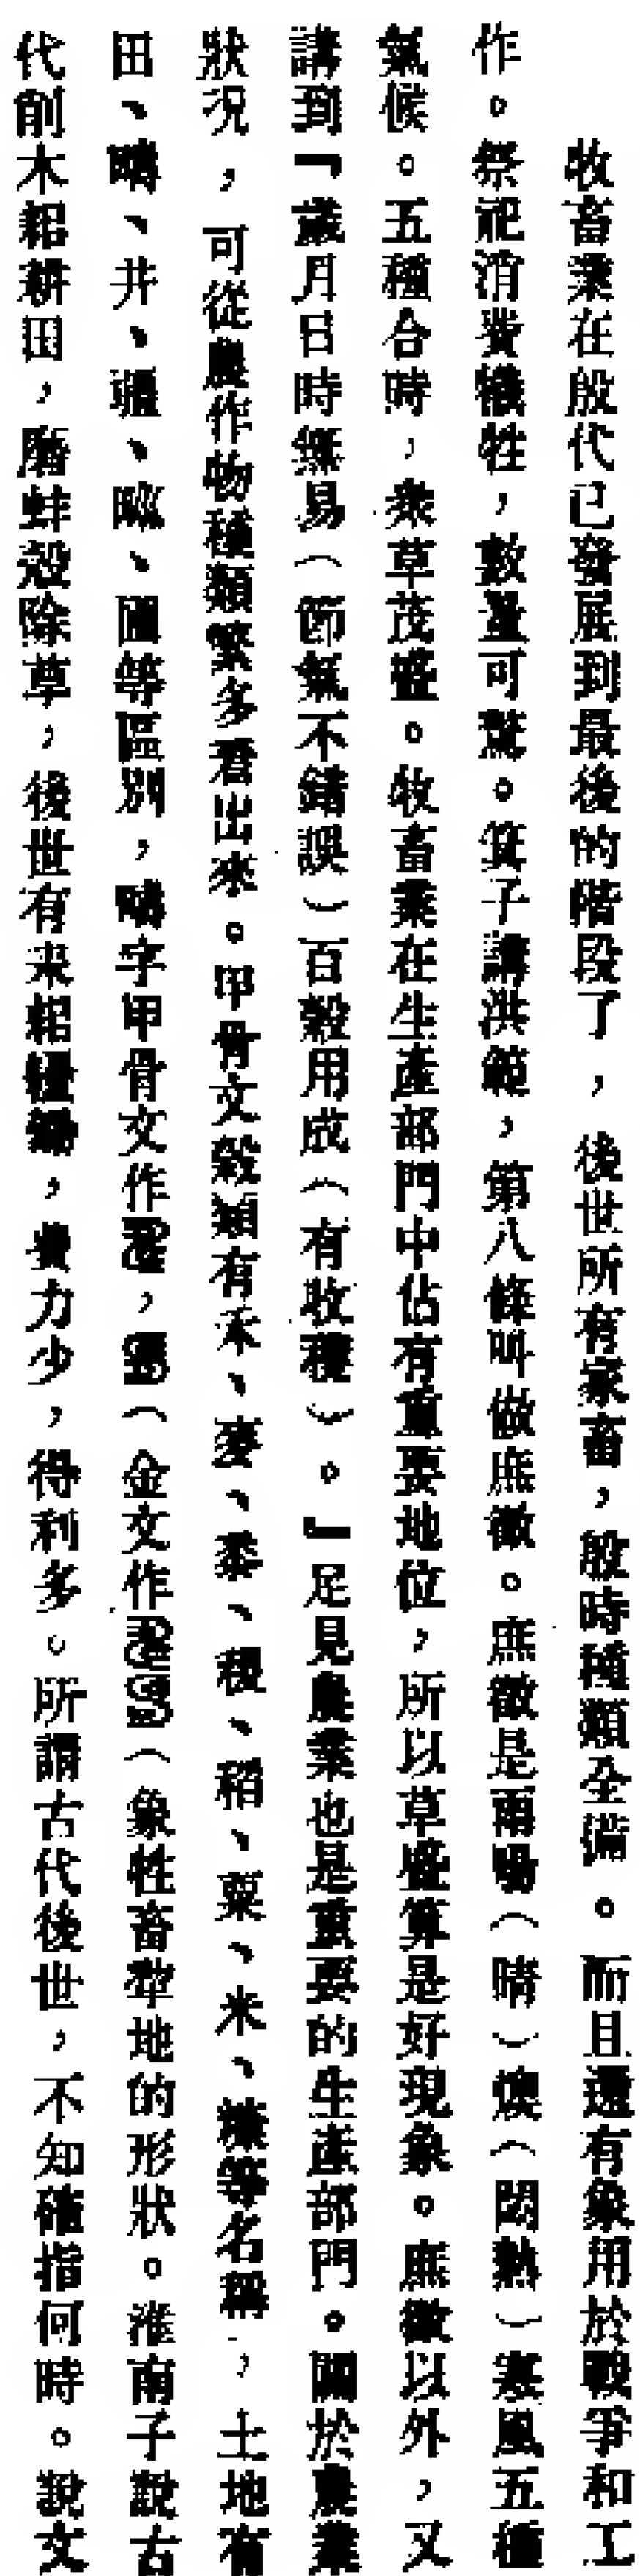 牧畜業在殷代已發展到最後的階段了，後世所有家畜，殷時種類全備。而且還有象用於戰爭和工
作。祭祀消費犧牲，數量可驚。箕子講洪範，第八條叫做庶徵。庶徵是雨暘（晴）燠（悶熱）寒風五種
氣候。五種合時，衆草茂盛。牧畜業在生產部門中佔有重要地位，所以草盛算是好現象。庶徵以外，又
講到『歲月日時無易（節氣不錯誤）百穀用成（有收穫）。』足見農業也是重要的生產部門。關於農業
狀況，可從農作物種類繁多看出來。甲骨文穀類有禾、麥、黍、稷、稻、粟、米、等名稱，土地有
田、疇、井、疆、甽、圃等區別，疇字甲骨文作，（金文作（象牲畜犂地的形狀。淮南子說古
代削木耜耕田，磨蚌殼除草，後世有耒耜耰鋤，費力少，得利多。所謂古代後世，不知確指何時。說文